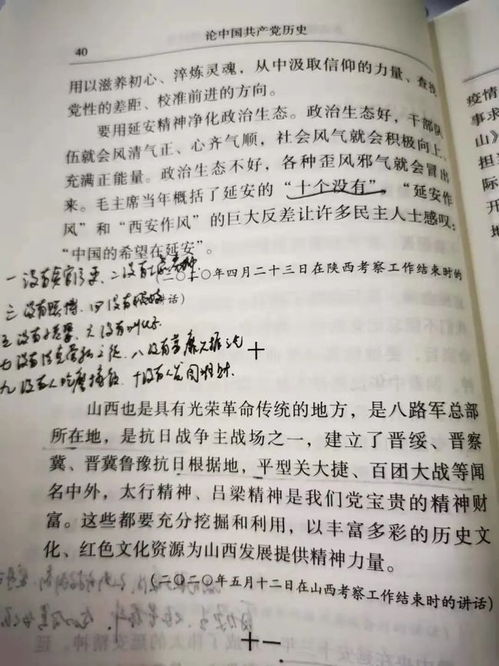 40
论中国共产党历史
用以滋养初心、淬炼灵魂，从中汲取信仰的力量、查找
党性的差距、校准前进的方向。
要用延安精神净化政治生态。政治生态好，干部队
伍就会风清气正、心齐气顺，社会风气就会积极向上、
充满正能量。政治生态不好，各种歪风邪气就会冒出
来。毛主席当年概括了延安的“十个没有”，“延安作
风”和“西安作风”的巨大反差让许多民主人士感叹：
“中国的希望在延安”。
一没有贪官污吏，二没有土豪劣绅
（二〇二〇年四月二十三日在陕西考察工作结束时的
讲话）
三没有赌博，四没有娼妓
五没有小老婆，六没有叫化子
七没有结党营私之徒，八没有萎靡不振之气
九没有人吃磨擦饭，十没有人发国难财
十
山西也是具有光荣革命传统的地方，是八路军总部
所在地，是抗日战争主战场之一，建立了晋绥、晋察
冀、晋冀鲁豫抗日根据地，平型关大捷、百团大战等闻
名中外，太行精神、吕梁精神是我们党宝贵的精神财
富。这些都要充分挖掘和利用，以丰富多彩的历史文
化、红色文化资源为山西发展提供精神力量。
（二〇二〇年五月十二日在山西考察工作结束时的讲话）
十一
疫情
事求
山》
担当
际
开
地